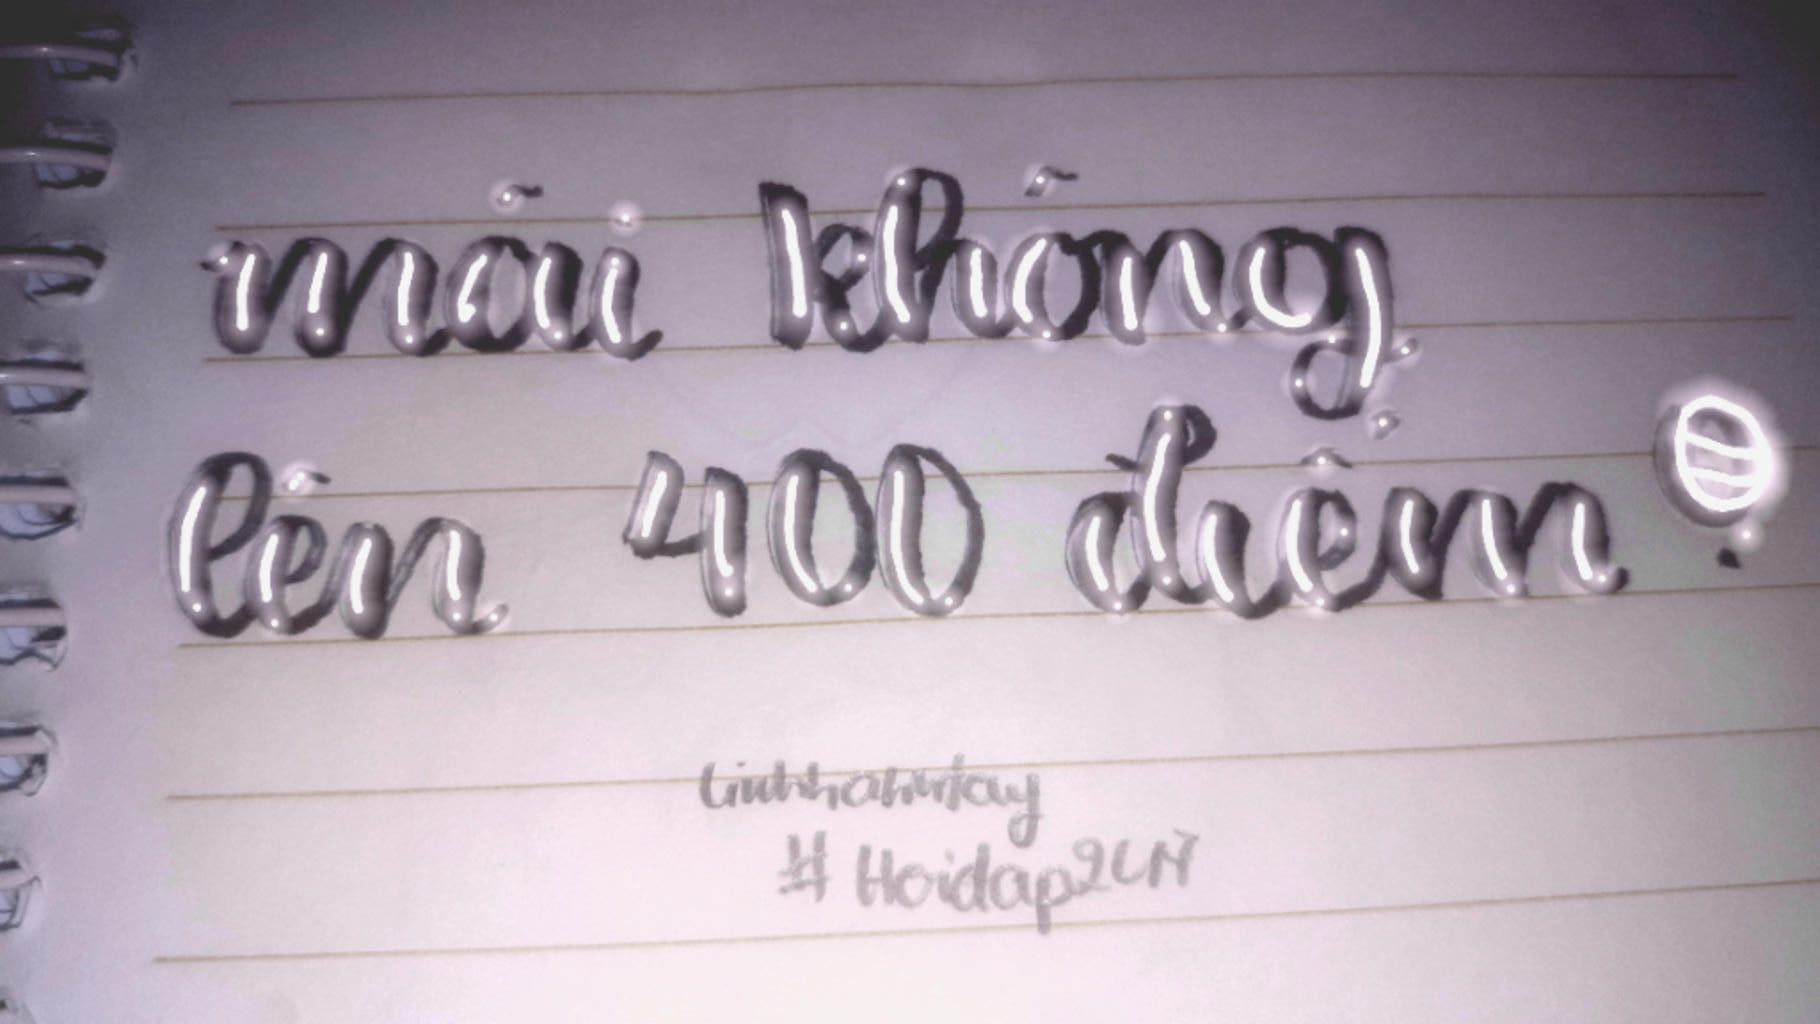 mãi không
lên 400 điểm
#Hoidap247